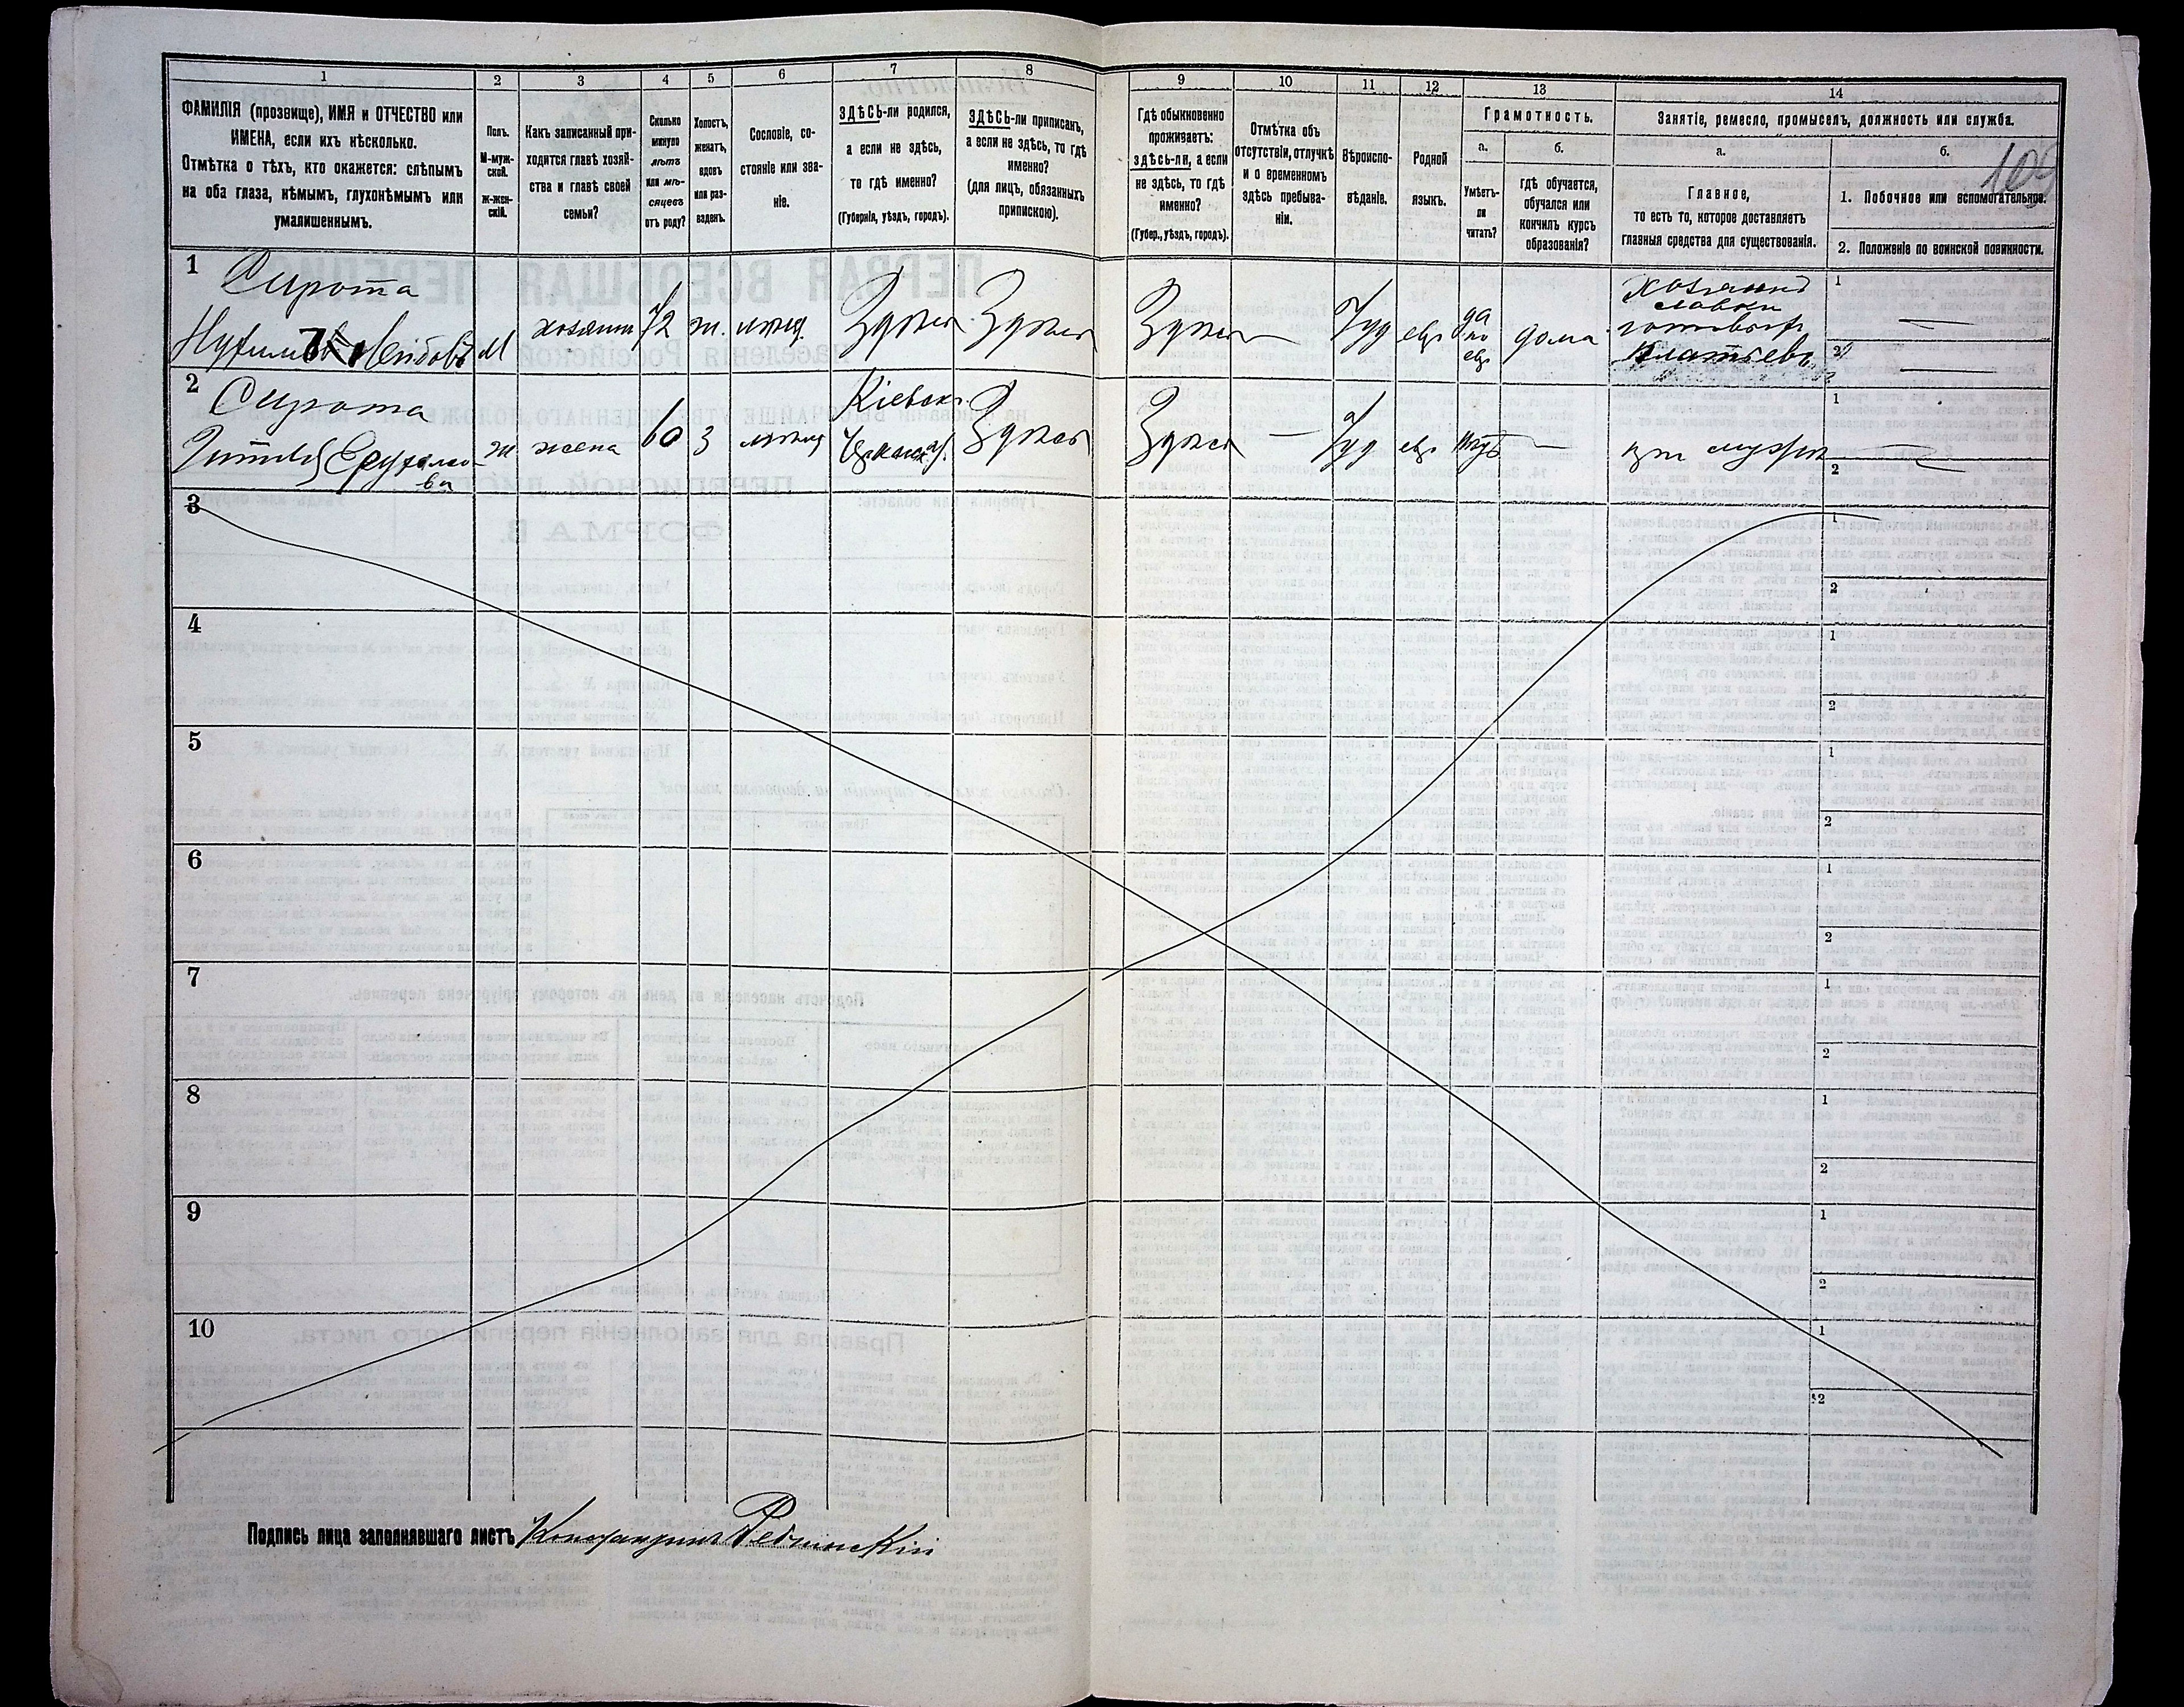 1
2
3
4
5
6
7
8
9
10
11
12
13
14
ФАМИЛІЯ (прозвище), ИМЯ и ОТЧЕСТВО или
ИМЕНА, если ихъ нѣсколько.
Отмѣтка о тѣхъ, кто окажется: слѣпымъ
на оба глаза, нѣмымъ, глухонѣмымъ или
умалишеннымъ.
Полъ.
М-муж-
ской.
Ж-жен-
скій.
Какъ записанный при-
ходится главѣ хозяй-
ства и главѣ своей
семьи?
Сколько
минуло
лѣтъ
или мѣ-
сяцевъ
отъ роду?
Холостъ,
женатъ,
вдовъ
или раз-
веденъ.
Сословіе, со-
стояніе или зва-
ніе.
ЗДѢСЬ-ли родился,
а если не здѣсь,
то гдѣ именно?
(Губернія, уѣздъ, городъ).
ЗДѢСЬ-ли приписанъ,
а если не здѣсь, то гдѣ
именно?
(для лицъ, обязанныхъ
припискою).
Гдѣ обыкновенно
проживаетъ:
здѣсь-ли, а если
не здѣсь, то гдѣ
именно?
(Губер., уѣздъ, городъ).
Отмѣтка объ
отсутствіи, отлучкѣ
и о временномъ
здѣсь пребыва-
ніи.
Вѣроиспо-
вѣданіе.
Родной
языкъ.
Грамотность.
а.
б.
Умѣетъ-
ли
читать?
гдѣ обучается,
обучался или
кончилъ курсъ
образованія?
Занятіе, ремесло, промыселъ, должность или служба.
а.
б.
109
Главное,
то есть то, которое доставляетъ
главныя средства для существованія.
1. Побочное или вспомогательное.
2. Положеніе по воинской повинности.
1
Сирота
Лейбовъ
М
хозяинъ
72
ж.
Здѣсь
Здѣсь
Здѣсь
—
Іуд
евр
да
по
евр
дома
Хозяинъ
лавки
1 —
2 —
2
Сирота
ж
жена
60
з
Кіевск.
Здѣсь
Здѣсь
—
Іуд
евр
—
при мужѣ
1
2
3
1
2
4
1
2
5
1
2
6
1
2
7
1
2
8
1
2
9
1
2
10
1
2
Подпись лица заполнявшаго листъ Константинъ